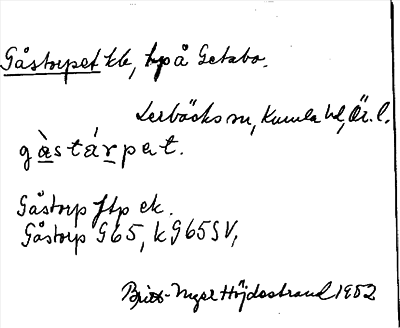 Gåstorpet kb, hp å Getabo.
Lerbäcks sn, Kumla hd, Ör. l.
gàstárpet.
Gåstorp ftp ek.
Gåstorp G65, k G65SV,
Britt-Inger Höjdestrand 1952